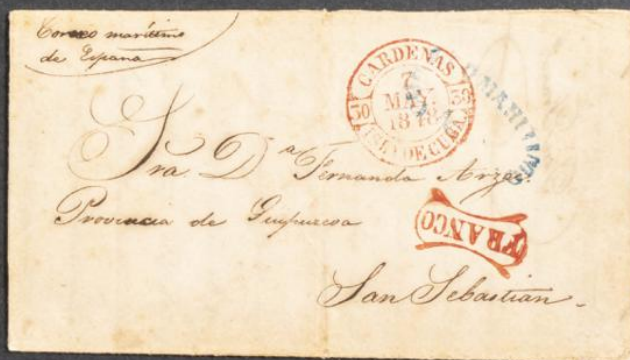 Correo marítimo
de España
CARDENAS
7
MAY.
1848
ISLA DE CUBA.
30
30
Sra. Dª Fernanda
Provincia de Guipuzcoa
FRANCO
San Sebastian.